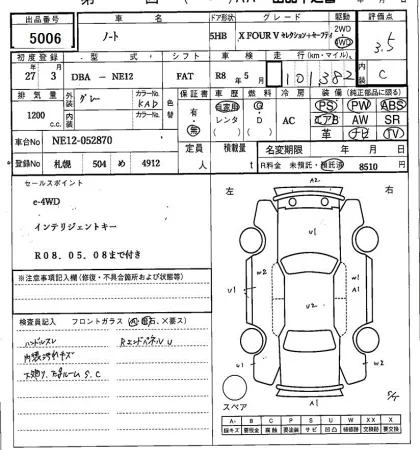 出品番号 車名 ドア形状 グレード 駆動 評価点
5006 ノート 5HB X FOUR V セレクション+セーフティ 2WD 4WD 3.5
初度登録 型式 シフト 車検 走行(km・マイル) 内装
27 3 DBA - NE12 FAT R8 5 月 101,382 C
排気量 外装 カラーNo. 色替 保証書 車歴 燃料 冷房 装備 (純正部品に限る)
1200 c.c. グレー KAD 有・無 自家用 レンタ G・D AC PS PW ABS
カラーNo. エアB AW SR
革 ナビ TV
車台No. NE12-052870 定員 積載量 名変期限 年 月 日
登録No. 札幌 504 め 4912 人 t R料金 未預託・預託済 8510
セールスポイント
e-4WD
インテリジェントキー
R08.05.08まで付き
※注意事項記入欄(修復・不具合箇所および状態等)
検査員記入 フロントガラス
ハンドルスレ RエンドパネルU
内張汚れキズ
左 右
A2
U1
W2 W2
U1 A1
U2
W2
U1 W2
A1
スペア
A1 B C P S U W XX X
線キズ 要板金 腐蝕 要塗装 サビ 凹凸 補修跡 交換跡 要交換